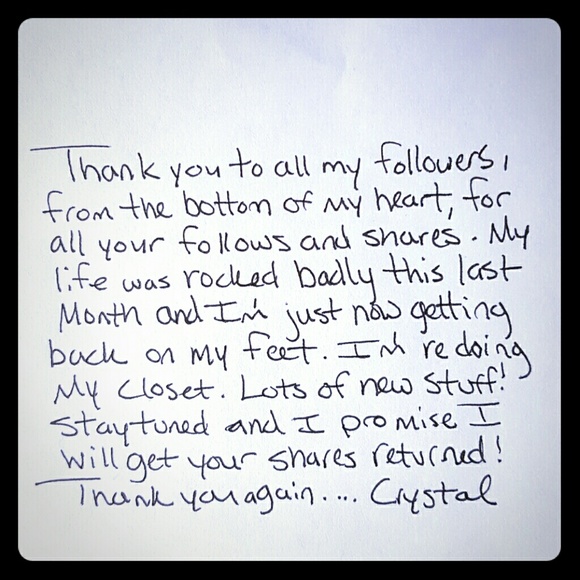 Thank you to all my followers,
from the bottom of my heart, for
all your follows and shares. My
life was rocked badly this last
Month and I'm just now getting
back on my feet. I'm redoing
My Closet. Lots of new stuff!
Stay tuned and I promise I
will get your shares returned!
Thank you again.... Crystal